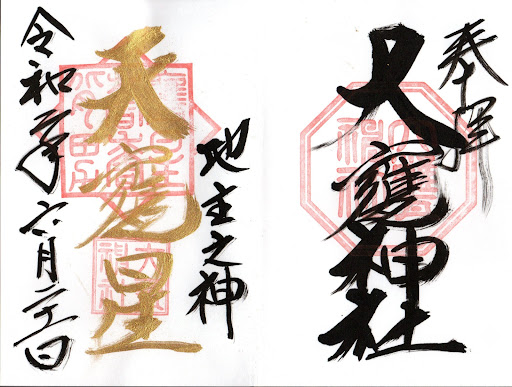 奉拝
大甕神社
地主之神
天甕星
令和二年六月二十日